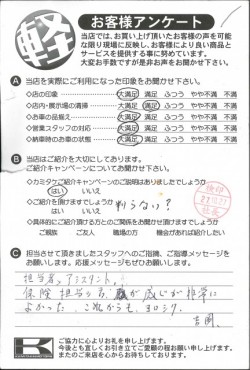 軽
お客様アンケート
当店では、お買い上げ頂いたお客様の声を可能
な限り現場に反映し、お客様により良い商品と
サービスを提供する事に努めています。
大変お手数ですが是非お声をお聞かせ下さい。
A 当店を実際にご利用になった印象をお聞かせ下さい。
◇店の印象 大満足 満足 ふつう やや不満 不満
◇店内・展示場の清掃 大満足 満足 ふつう やや不満 不満
◇お車の品揃え 大満足 満足 ふつう やや不満 不満
◇営業スタッフの対応 大満足 満足 ふつう やや不満 不満
◇納車時のお車の状態 大満足 満足 ふつう やや不満 不満
B 当店はご紹介を大切にしてあります。
ご紹介キャンペーンについてお聞かせ下さい。
◇カミタケご紹介キャンペーンのご説明はありましたでしょうか
はい いいえ
◇ご紹介を頂けますでしょうか
はい いいえ
◇具体的にご紹介頂ける方とのご関係をお聞かせ頂けますでしょうか
ご親族 ご友人 職場の方 機会があれば紹介したい
C 担当させて頂きましたスタッフへのご指摘、ご指導メッセージを
お願いします。応援メッセージもぜひお願いします。
担当者、アシスタント、
保険担当の方、感じが非常に
よかった。これからも、ヨロシク。
K
ご協力に心よりお礼を申し上げます。
今後とも宜しくお引き立てご愛顧の程お願い申し上げます。
またのご来店を心からお待ちしております。